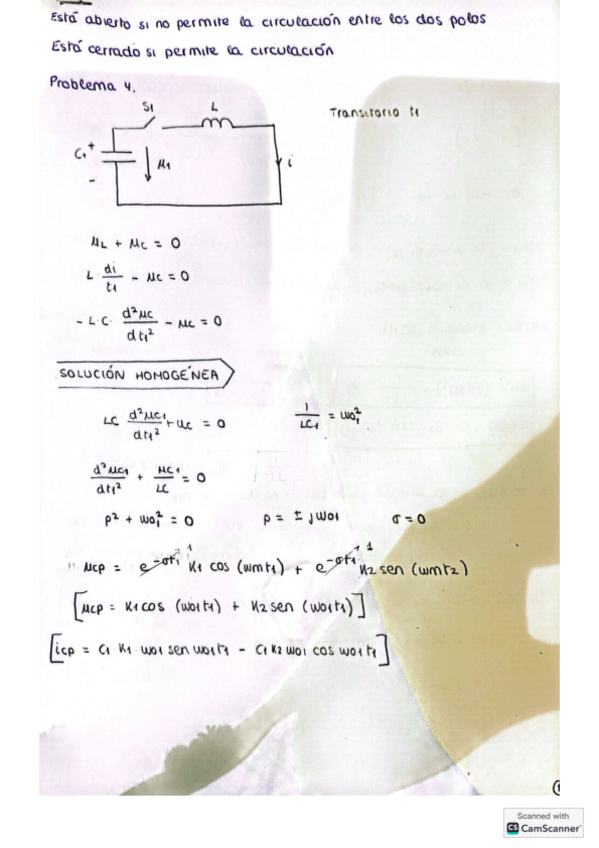 Está abierto si no permite la circulación entre los dos polos
Está cerrado si permite la circulación
Problema 4.
S1 L Transitorio t1
C1 + - μ1 i
μL + μC = 0
L · di/t1 - μC = 0
- L·C· d²μC/dt1² - μC = 0
SOLUCIÓN HOMOGÉNEA
LC d²μC1/dt1² + uc = 0 1/LC1 = ωo1²
d²μC1/dt1² + μC1/LC = 0
p² + ωo1² = 0 p = ± jωo1 σ = 0
μcp = e^-σt1 1 K1 cos (ωmt1) + e^-σt1 1 K2 sen (ωmt2)
[μcp = K1 cos (ωo1t1) + K2 sen (ωo1t1)]
[icp = C1·K1·ωo1 sen ωo1t1 - C1 K2 ωo1 cos ωo1t1]
Scanned with
CS CamScanner